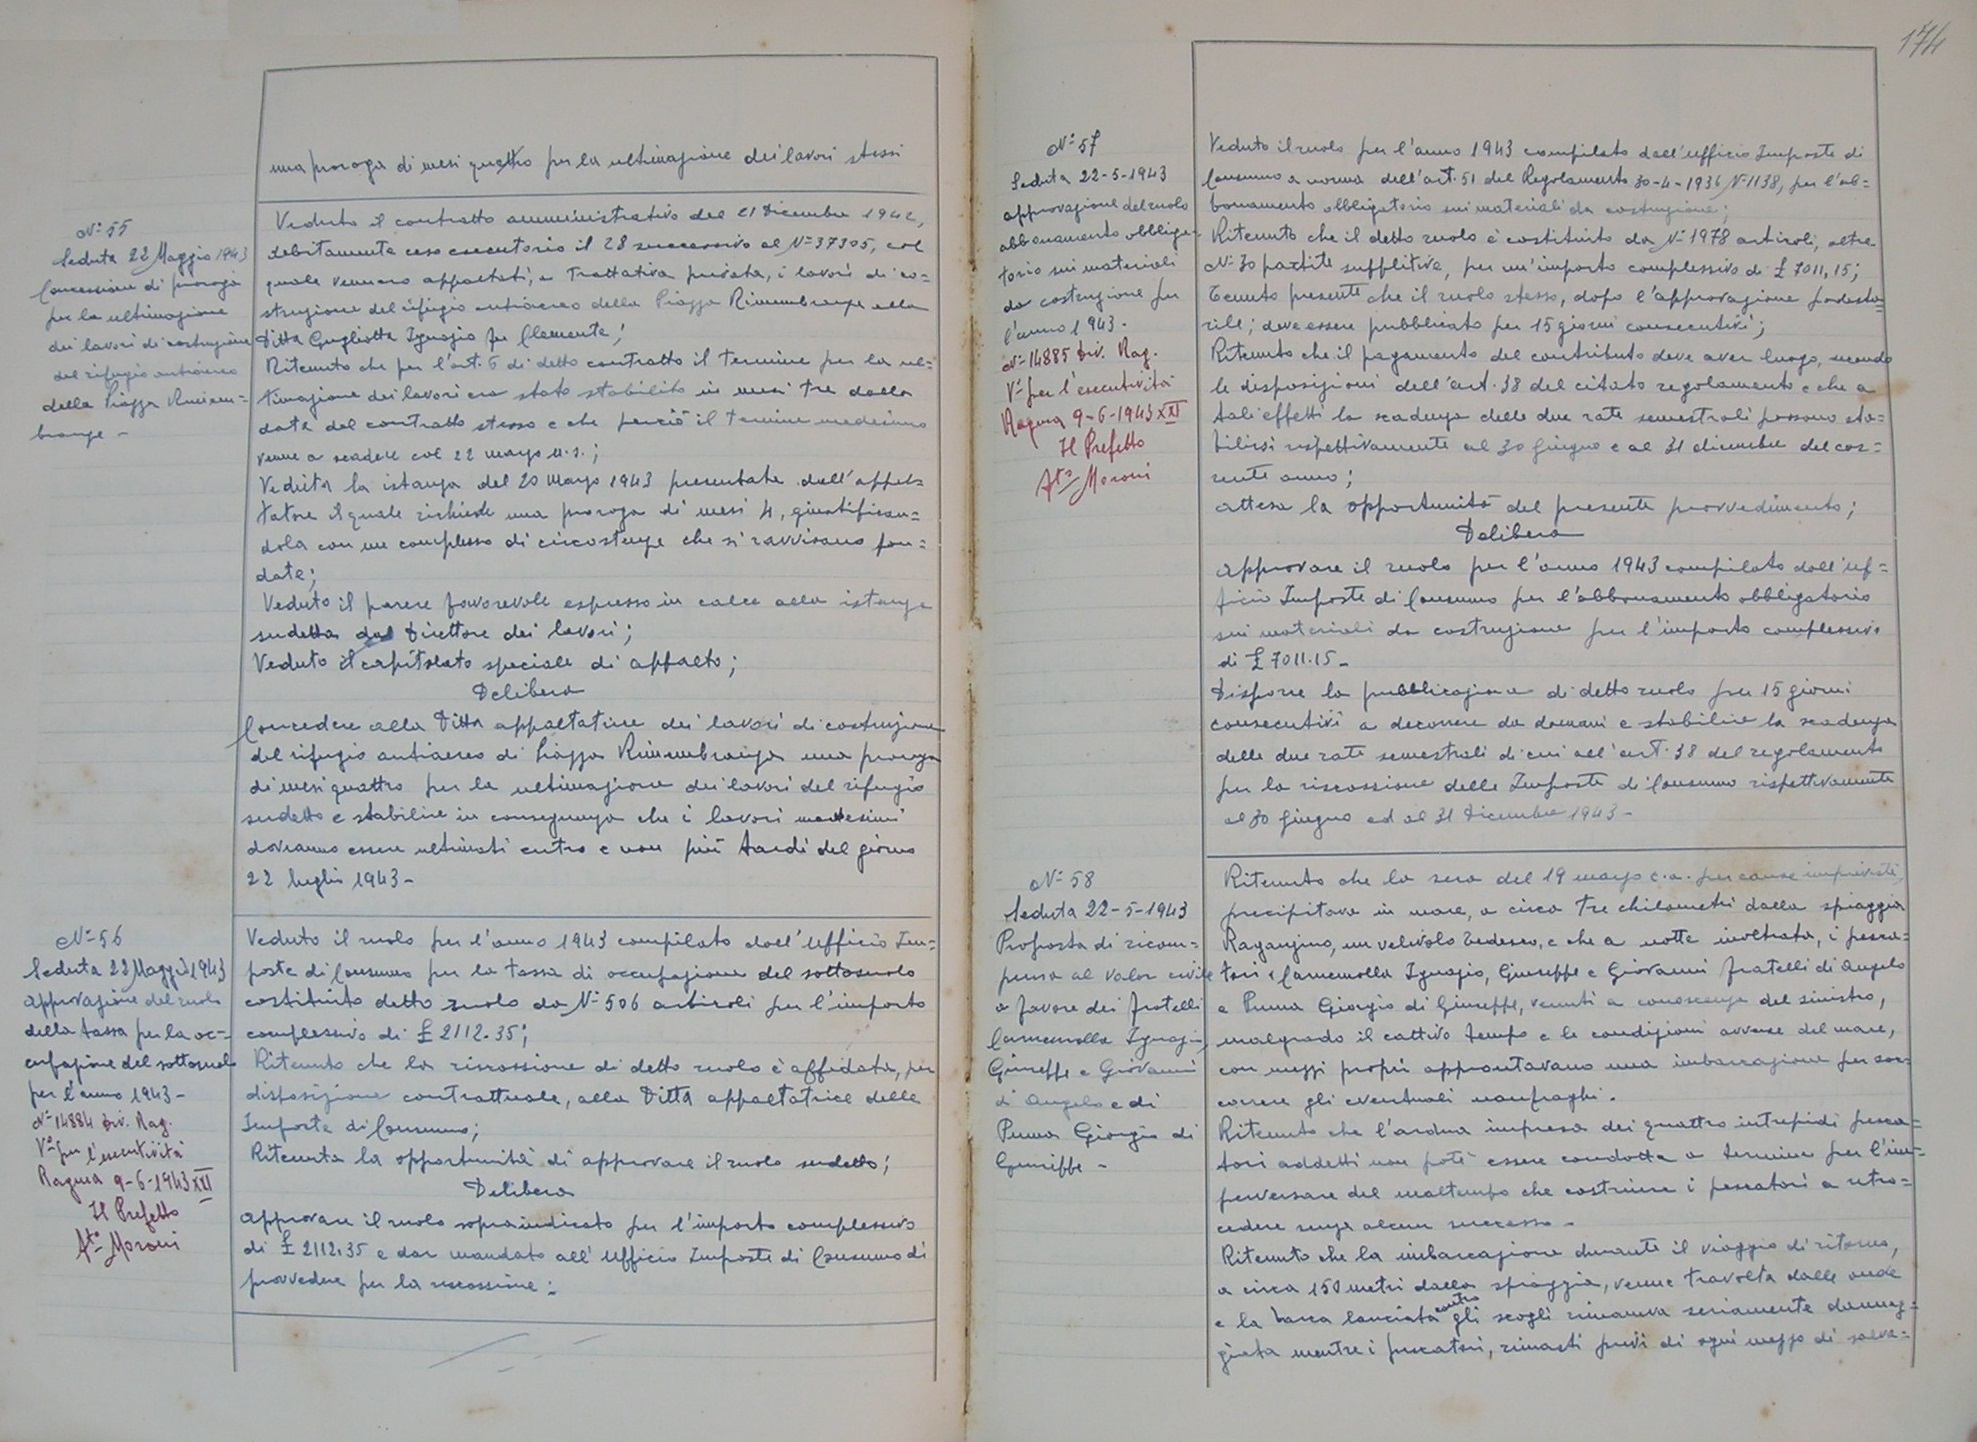 una proroga di mesi quattro per la ultimazione dei lavori stessi
N° 55
Seduta 22 Maggio 1943
Concessione di proroga
per la ultimazione
dei lavori di costruzione
del rifugio antiaereo
della Piazza Rimem=
branze -
Veduto il contratto amministrativo del 21 Dicembre 1942,
debitamente reso esecutorio il 28 successivo al N° 37305, col
quale vennero appaltati, a Trattativa privata, i lavori di co=
struzione del rifugio antiaereo della Piazza Rimembranze alla
Ditta Gugliotta Ignazio fu Clemente;
Ritenuto che per l'art. 6 di detto contratto il termine per la ul=
timazione dei lavori era stato stabilito in mesi tre dalla
data del contratto stesso e che perciò il termine medesimo
venne a scadere col 22 marzo u.s.;
Veduta la istanza del 20 Marzo 1943 presentata dall'appal=
tatore il quale richiede una proroga di mesi 4, giustifican=
dola con un complesso di circostanze che si ravvisano fon=
date;
Veduto il parere favorevole espresso in calce alla istanza
sudetta dal Direttore dei lavori;
Veduto il capitolato speciale di appalto;
Delibera
Concedere alla Ditta appaltatrice dei lavori di costruzione
del rifugio antiaereo di Piazza Rimembranza una proroga
di mesi quattro per la ultimazione dei lavori del rifugio
sudetto e stabilire in conseguenza che i lavori medesimi
dovranno essere ultimati entro e non più tardi del giorno
22 luglio 1943-
N° 56
Seduta 22 Maggio 1943
approvazione del ruolo
della tassa per la oc=
cupazione del sottosuolo
per l'anno 1943-
N° 14884 Div. Rag.
V° per l'esecutività
Ragusa 9-6-1943 XXI
Il Prefetto
Fto Moroni
Veduto il ruolo per l'anno 1943 compilato dall'Ufficio Im=
poste di Consumo per la tassa di occupazione del sottosuolo
costituito detto ruolo da N° 506 articoli per l'importo
complessivo di £ 2112.35;
Ritenuto che la riscossione di detto ruolo è affidata, per
disposizione contrattuale, alla Ditta appaltatrice delle
Imposte di Consumo;
Ritenuta la opportunità di approvare il ruolo sudetto;
Delibera
approvare il ruolo sopraindicato per l'importo complessivo
di £ 2112.35 e dar mandato all'Ufficio Imposte di Consumo di
provvedere per la riscossione:
174
N° 57
Seduta 22-5-1943
approvazione del ruolo
abbonamento obbliga=
torio sui materiali
da costruzione per
l'anno 1943-
N° 14885 Div. Rag.
V° per l'esecutività
Ragusa 9-6-1943 XXI
Il Prefetto
Fto Moroni
Veduto il ruolo per l'anno 1943 compilato dall'ufficio Imposte di
Consumo a norma dell'art. 51 del Regolamento 30-4-1936 N° 1138, per l'ab=
bonamento obbligatorio sui materiali da costruzione;
Ritenuto che il detto ruolo è costituito da N° 1978 articoli, oltre
N° 30 partite suppletive, per un'importo complessivo di £ 7011,15;
Tenuto presente che il ruolo stesso, dopo l'approvazione podesta=
rile; deve essere pubblicato per 15 giorni consecutivi;
Ritenuto che il pagamento del contributo deve aver luogo, secondo
le disposizioni dell'art. 38 del citato regolamento e che a
tali effetti la scadenza delle due rate semestrali possono sta=
bilirsi rispettivamente al 30 giugno e al 31 dicembre del cor=
rente anno;
attesa la opportunità del presente provvedimento;
Delibera
approvare il ruolo per l'anno 1943 compilato dall'Uf=
ficio Imposte di Consumo per l'abbonamento obbligatorio
sui materiali da costruzione per l'importo complessivo
di £ 7011.15-
Disporre la pubblicazione di detto ruolo per 15 giorni
consecutivi a decorrere da domani e stabilire la scadenza
delle due rate semestrali di cui all'art. 38 del regolamento
per la riscossione delle Imposte di Consumo rispettivamente
al 30 giugno ed al 31 Dicembre 1943-
N° 58
Seduta 22-5-1943
Proposta di ricom=
pensa al valor civile
a favore dei fratelli
Carnemolla Ignazio,
Giuseppe e Giovanni
di Angelo e di
Puma Giorgio di
Giuseppe -
Ritenuto che la sera del 19 marzo c.a. per cause impreviste,
precipitava in mare, a circa tre chilometri dalla spiaggia
Raganzino, un velivolo tedesco, e che a notte inoltrata, i pesca=
tori Carnemolla Ignazio, Giuseppe e Giovanni fratelli di Angelo
e Puma Giorgio di Giuseppe, venuti a conoscenza del sinistro,
malgrado il cattivo tempo e le condizioni avverse del mare,
con mezzi propri approntavano una imbarcazione per soc=
correre gli eventuali naufraghi.
Ritenuto che l'ardua impresa dei quattro intrepidi pesca=
tori addetti non potè essere condotta a termine per l'im=
perversare del maltempo che costrinse i pescatori a retro=
cedere senza alcun successo -
Ritenuto che la imbarcazione durante il viaggio di ritorno,
a circa 150 metri dalla spiaggia, venne travolta dalle onde
e la barca lanciata contro gli scogli rimaneva seriamente danneg=
giata mentre i pescatori, rimasti privi di ogni mezzo di salva=